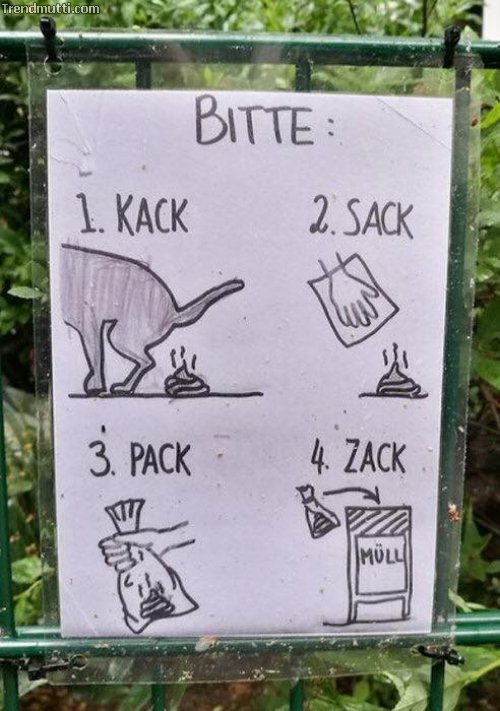 Trendmutti.com
BITTE:
1. KACK
2. SACK
3. PACK
4. ZACK
MÜLL